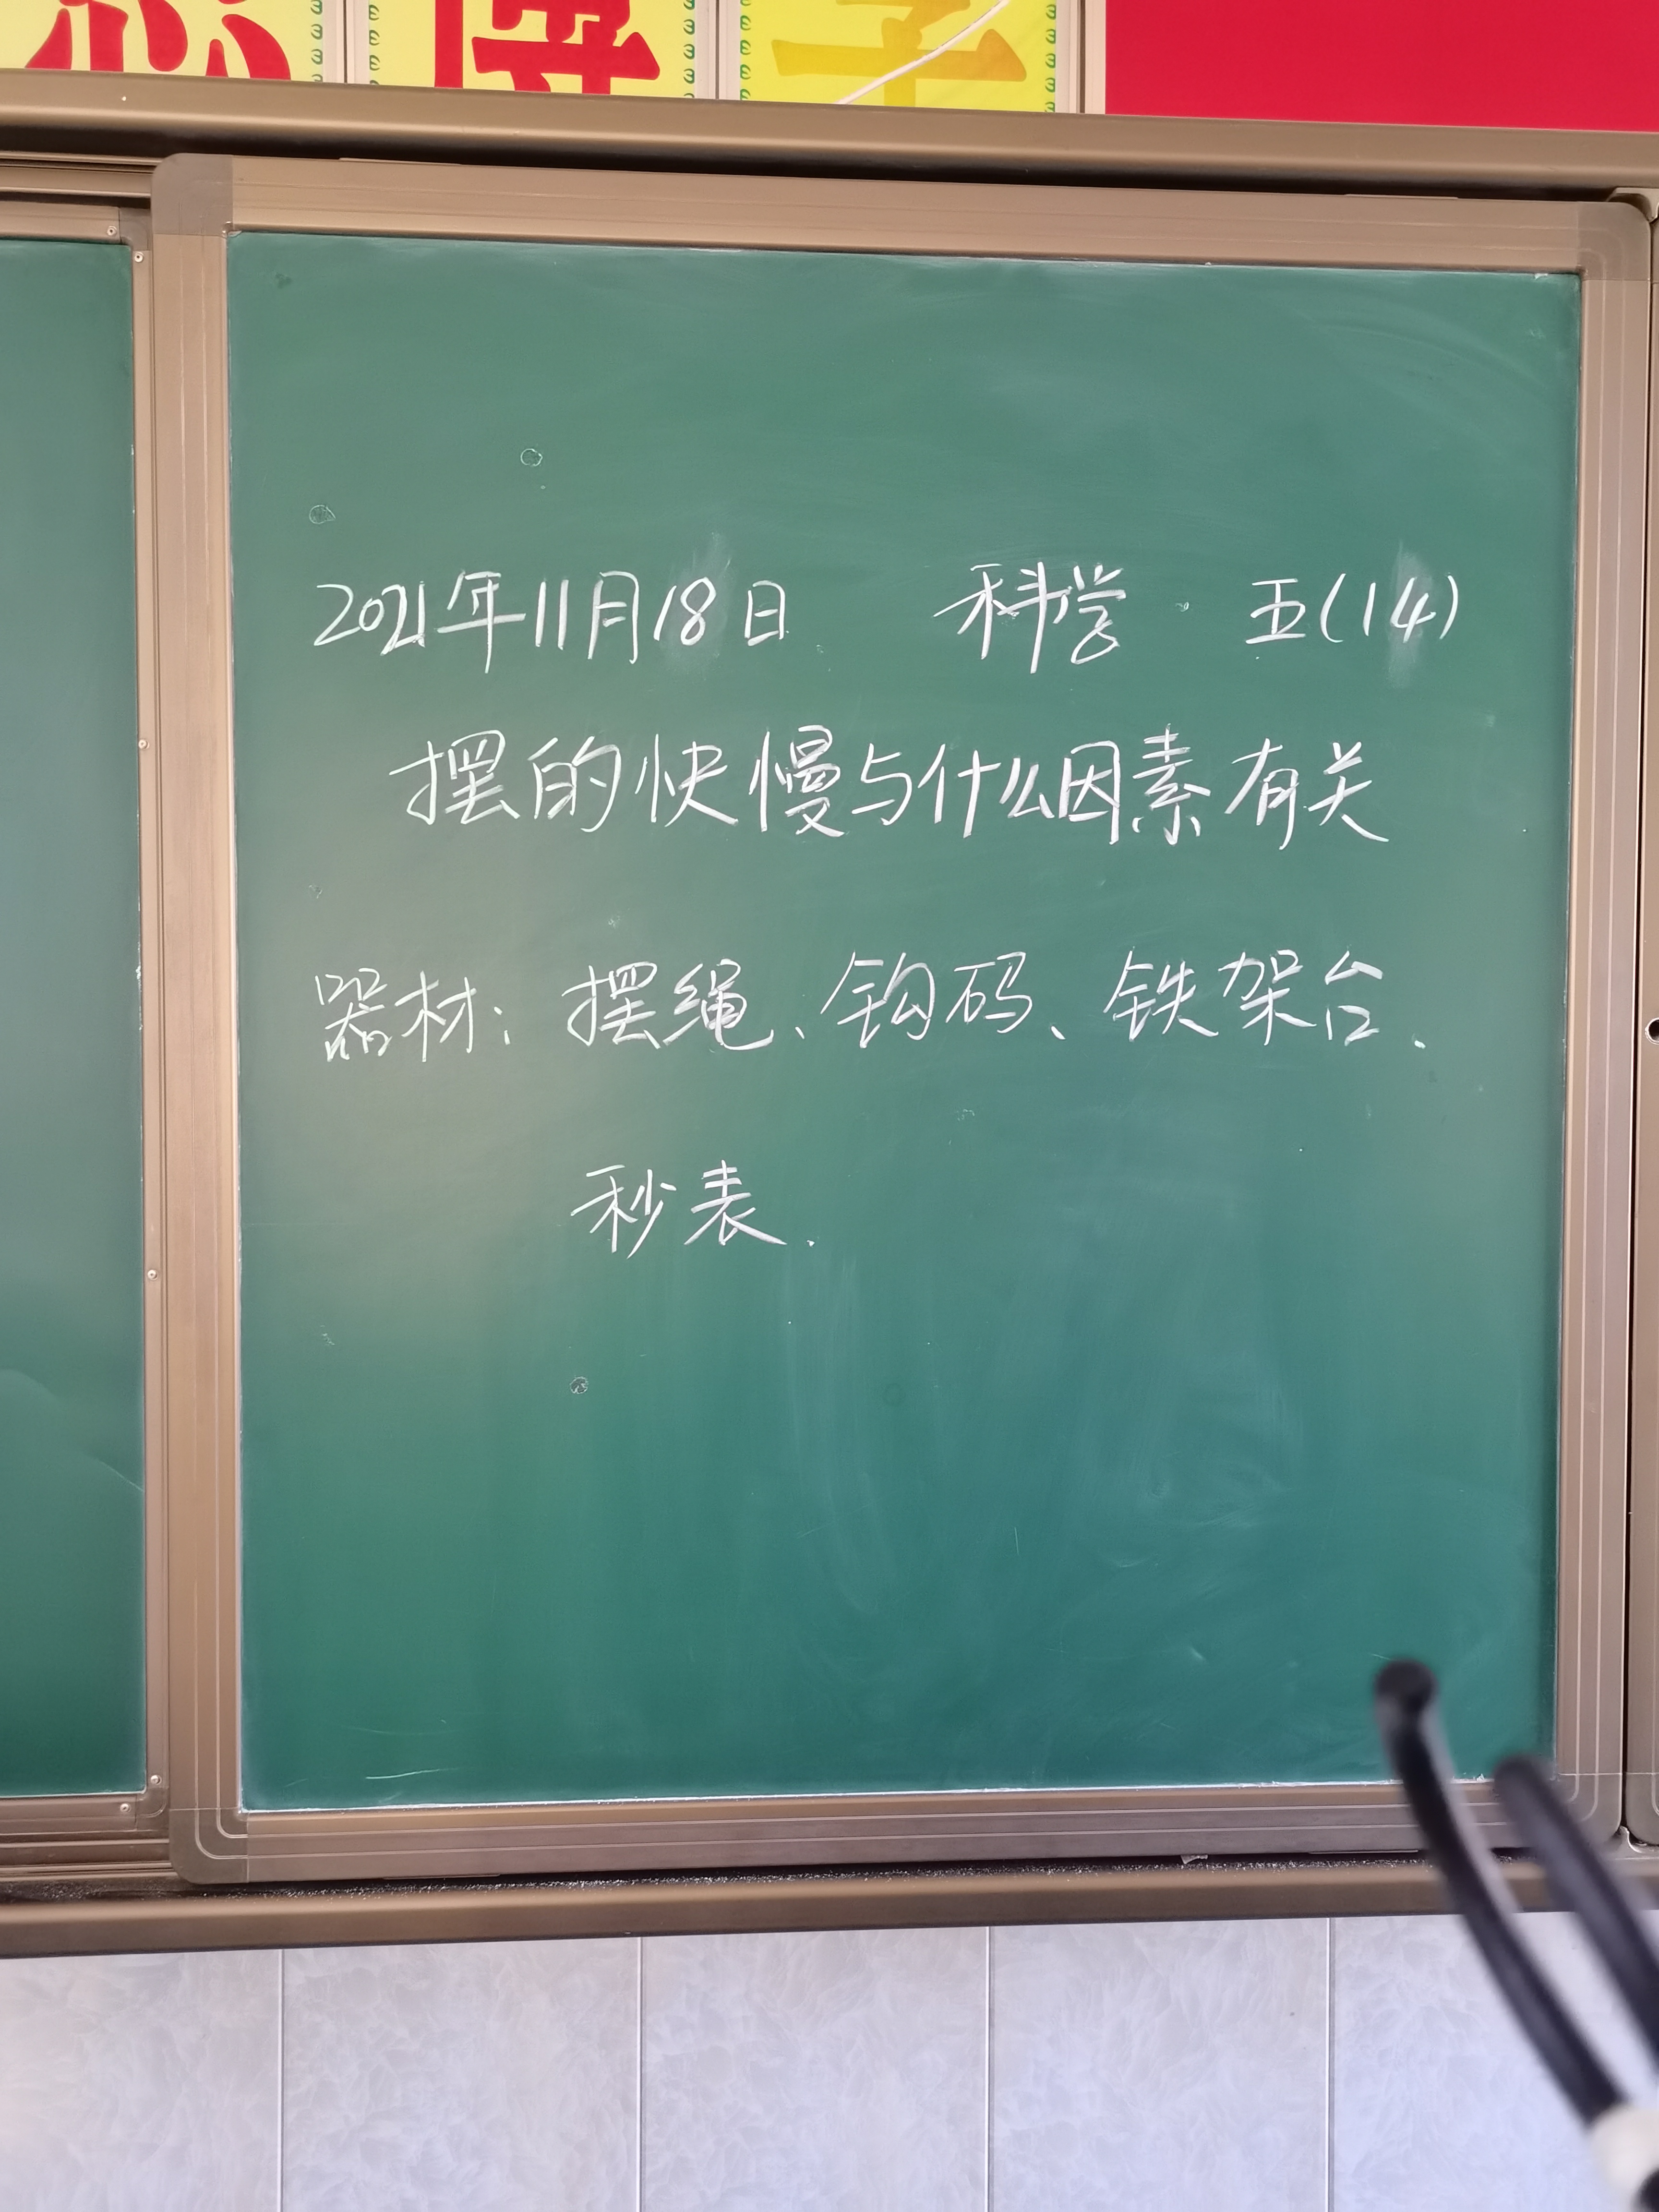 2021年11月18日 科学 五(14)
摆的快慢与什么因素有关
器材：摆绳、钩码、铁架台、
秒表.